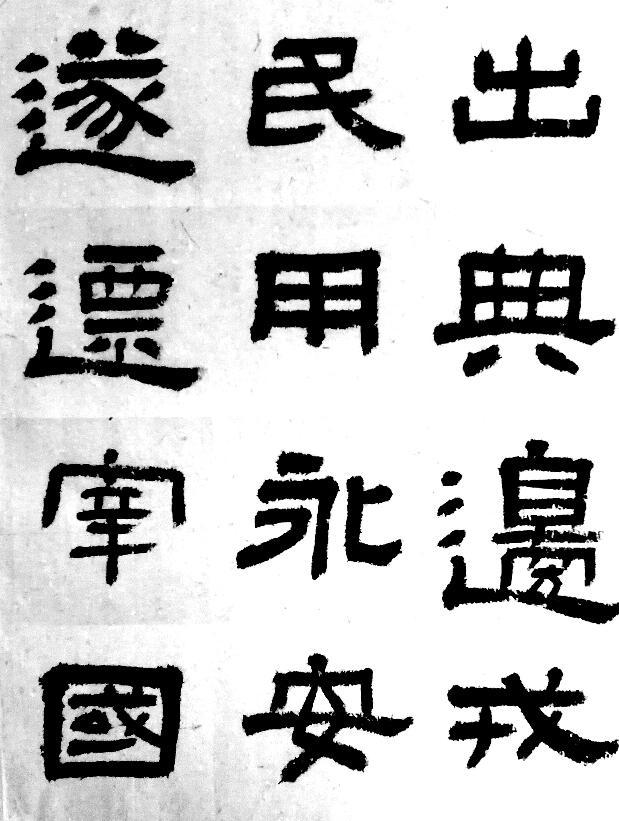 出典邊戎
民用永安
遂遷宰國